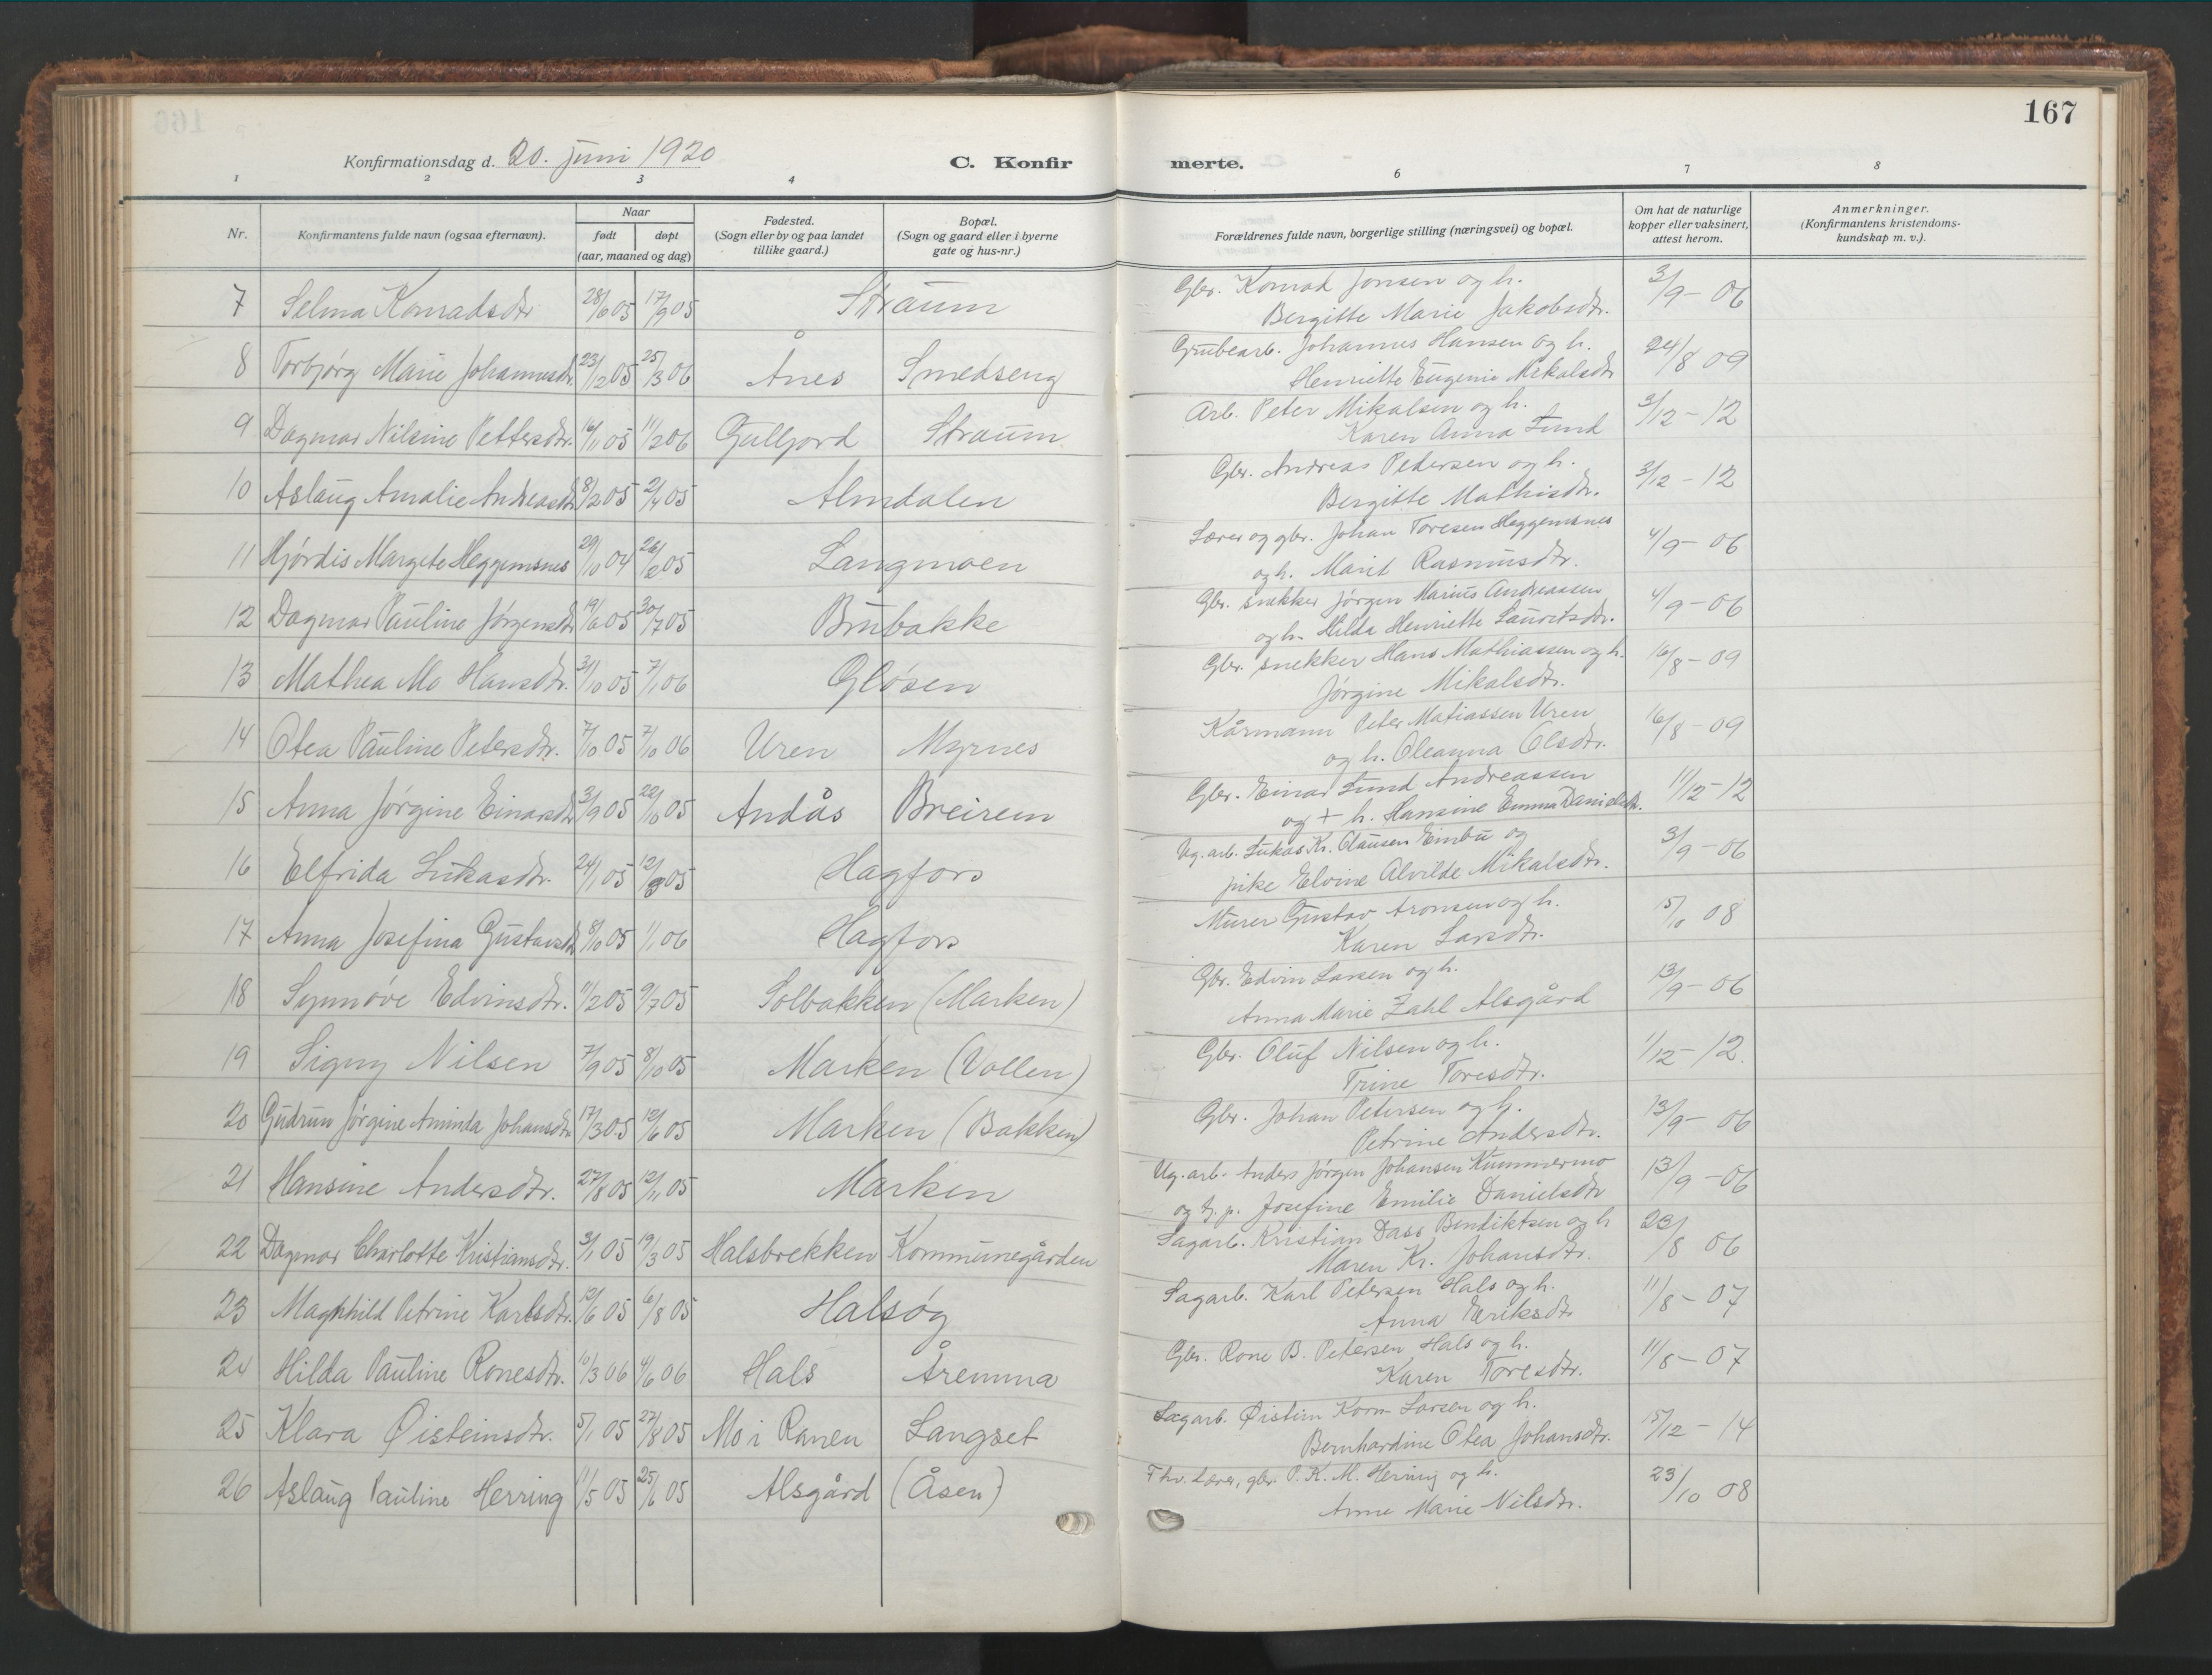 167
Konfirmationsdag d. 20. juni 1920
C. Konfirmerte.
1 2 3 4 6 7 8
Nr.
Konfirmantens fulde navn (ogsaa efternavn).
Naar
født døpt
(aar, maaned og dag)
Fødested.
(Sogn eller by og paa landet
tillike gaard.)
Bopæl.
(Sogn og gaard eller i byerne
gate og hus-nr.)
Forældrenes fulde navn, borgerlige stilling (næringsvei) og bopæl.
Om hat de naturlige
kopper eller vaksinert,
attest herom.
Anmerkninger.
(Konfirmantens kristendoms-
kundskap m. v.).
7 Selma Konradsdtr 28/6 05 17/9 05 Straum Gbr. Konrad Jonsen og h. 3/9-06
Bergitte Marie Jakobsdtr.
8 Torbjørg Marie Johannesdtr. 23/12 05 25/3 06 Ånes Smedseng Grubearb. Johannes Hansen og h. 24/8 09
Henriette Eugenie Mikalsdtr
9 Dagmar Nilsine Pettersdtr. 16/11 05 11/2 06 Gulfjord Straum. Arb. Peter Mikalsen og h. 3/12-12
Karen Anna Lund
10 Aslaug Amalie Andreasdtr 8/2 05 2/4 05 Almdalen Gbr. Andreas Petersen og h. 3/12-12
Bergitte Mathisdtr.
11 Hjørdis Margete Heggemsnes 29/10 04 26/2 05 Langmoen Lærer og gbr. Johan Toresen Heggemsnes 4/9-06
og h. Marit Rasmusdtr.
12 Dagmar Pauline Jørgensdtr 19/6 05 30/7 05 Brubakke Gbr. snekker Jørgen Marius Andreassen 4/9-06
og h. Hilda Henriette Lauritsdtr.
13 Mathea Mo Hansdtr. 31/10 05 7/1 06 Gløsen Gbr. snekker Hans Mathiassen og h. 16/8-09
Jørgine Mikalsdtr.
14 Otea Pauline Petersdtr. 7/10 05 7/10 06 Uren Myrnes Kårmann Peter Matiassen Uren 16/8-09
og h. Oleanna Olsdtr.
15 Anna Jørgine Einarsdtr 3/9 05 22/10 05 Andås Breirem Gbr. Einar Lund Andreassen 11/12-12
og + h. Hansine Emma Danielsdtr.
16 Elfrida Lukasdtr. 24/1 05 12/3 05 Hagfors Ug. arb. Lukas Kr. Clausen Einbu og 3/9-06
pike Elvine Alvilde Mikalsdtr.
17 Anna Josefina Gustavsdtr 8/10 05 1/1 06 Hagfors Murer Gustav Aronsen og h. 08
Karen Larsdtr.
18 Synnøve Edvinsdtr. 11/2 05 9/7 05 Solbakken (Marken) Gbr. Edvin Larsen og h. 13/9-06
Anna Marie Zahl Alsgård
19 Signy Nilsen 7/9 05 8/10 05 Marken (Vollen) Gbr. Oluf Nilsen og h. 1/12-12.
Trine Toresdtr.
20 Gudrun Jørgine Aminda Johansdtr 17/3 05 12/6 05 Marken (Bakken) Gbr. Johan Petersen og h. 13/9-06
Petrine Andersdtr.
21 Hansine Andersdtr. 27/8 05 12/11 05 Marken Ug. arb. Anders Jørgen Johansen Kummermo 13/9-06
og Josefine Emilie Danielsdtr
22 Dagmar Charlotte Kristiansdtr. 3/1 05 19/3 05 Halsbrekken Kommunegården Sagarb. Kristian Dass Bendiktsen og h 23/8 06
Maren Kr. Johansdtr.
23 Maghhild Petrine Karlsdtr. 12/6 05 6/8 05 Halsøy Sagarb. Karl Petersen Hals og h. 11/8-07
Anna Eriksdtr
24 Hilda Pauline Ronesdtr. 10/3 06 4/6 06 Hals Åremma Gbr. Rone B. Petersen Hals og h. 11/8-07
Karen Toresdtr.
25 Klara Øisteinsdtr. 5/1 05 27/8 05 Mo i Ranen Langset Sagarb. Øistein Korn. Larsen og h. 15/12-14
Bernhardine Otea Johansdtr.
26 Aslaug Pauline Herring 11/5 05 25/6 05 Alsgård (Åsen) Fhv. Lærer, gbr. P. K. M. Herring og h. 23/10 08
Anne Marie Nilsdtr.